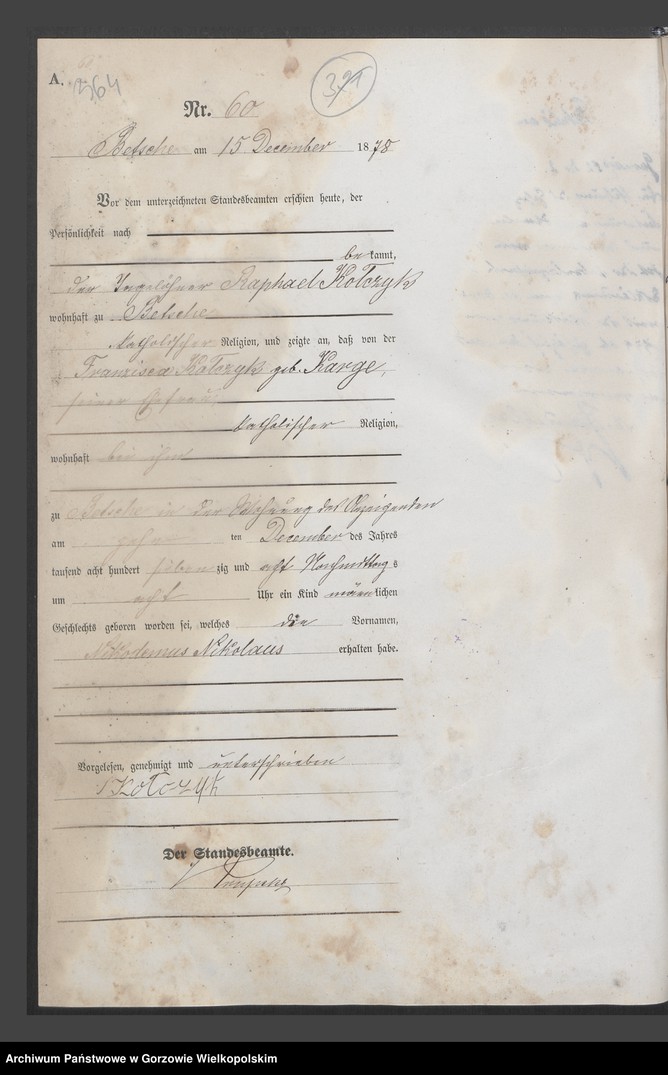 A.
564
391
Nr. 60
Betsche am 15 December 1878
Vor dem unterzeichneten Standesbeamten erschien heute, der
Persönlichkeit nach
bekannt,
der Tagelöhner Raphael Kołczyk
wohnhaft zu Betsche
katholischer Religion, und zeigte an, daß von der
Franzisca Kołczyk geb. Karge,
seiner Ehefrau
katholischer Religion,
wohnhaft bei ihm
zu Betsche in der Wohnung des Anzeigenden
am zehn ten December des Jahres
tausend acht hundert sieben zig und acht Nachmittags
um acht Uhr ein Kind männlichen
Geschlechts geboren worden sei, welches die Vornamen,
Nikodemus Nikolaus erhalten habe.
Vorgelesen, genehmigt und unterschrieben
Kołczyk
Der Standesbeamte.
Archiwum Państwowe w Gorzowie Wielkopolskim